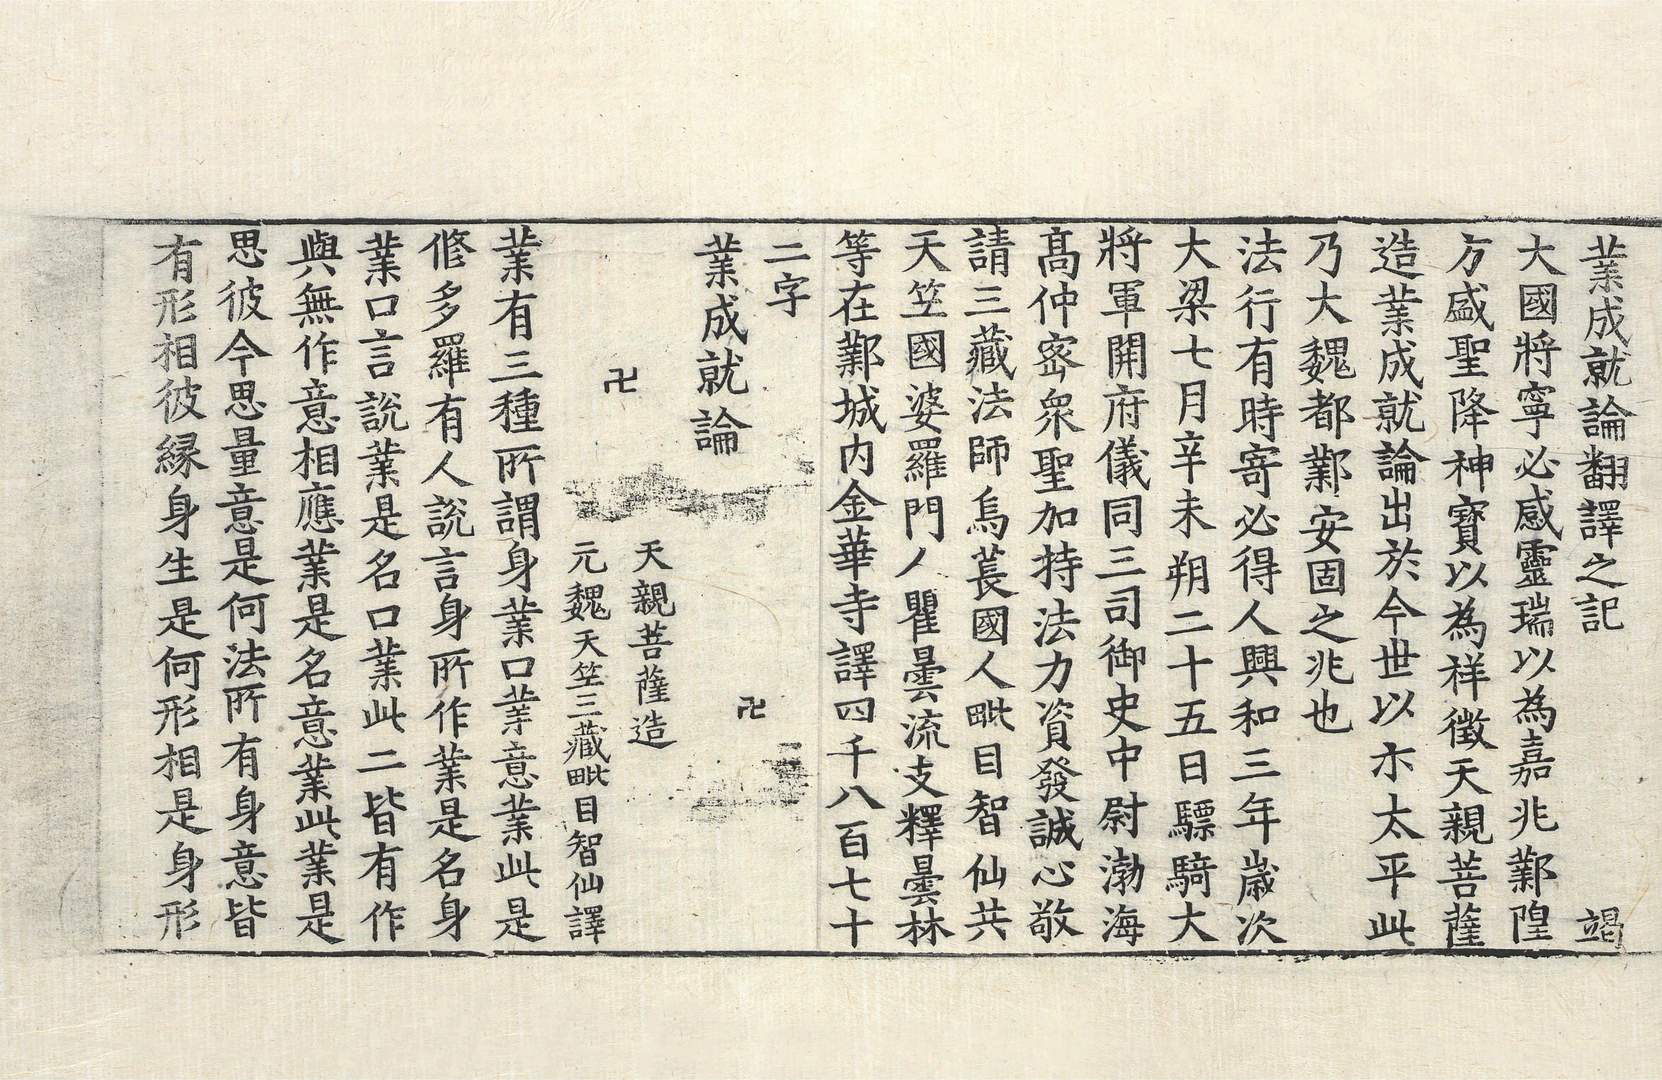 業成就論翻譯之記 竭
大國將寧必感靈瑞以為嘉兆鄴隍
方盛聖降神寶以為祥徵天親菩薩
造業成就論出於今世以示太平此
乃大魏都鄴安固之兆也
法行有時寄必得人興和三年歲次
大梁七月辛未朔二十五日驃騎大
將軍開府儀同三司御史中尉渤海
高仲密眾聖加持法力資發誠心敬
請三藏法師烏萇國人毗目智仙共
天竺國婆羅門人瞿曇流支釋曇林
等在鄴城內金華寺譯四千八百七十
二字
業成就論
卍
卍
天親菩薩造
元魏天竺三藏毗目智仙譯
業有三種所謂身業口業意業此是
修多羅有人說言身所作業是名身
業口言說業是名口業此二皆有作
與無作意相應業是名意業此業是
思彼今思量意是何法所有身意皆
有形相彼緣身生是何形相是身形